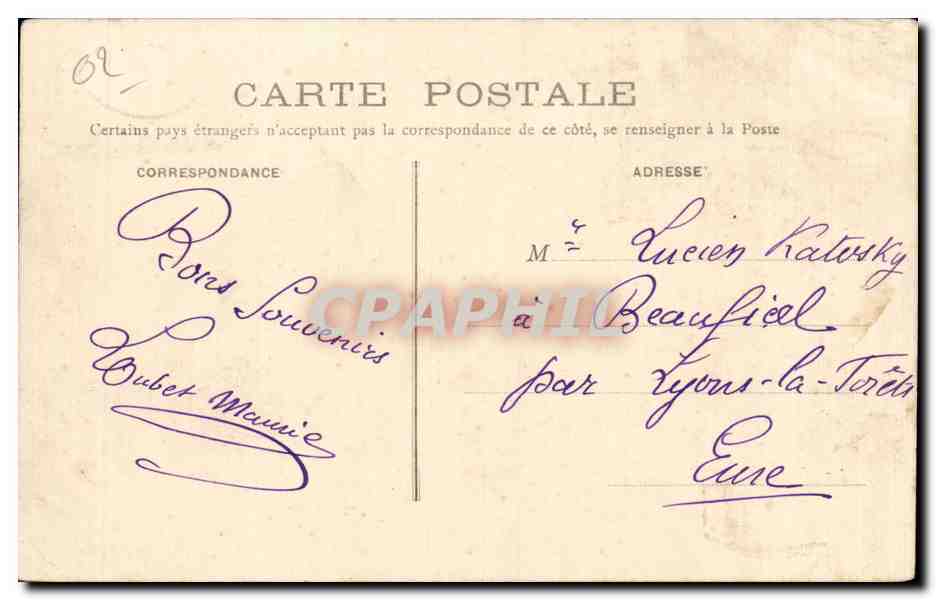 02
CARTE POSTALE
Certains pays étrangers n'acceptant pas la correspondance de ce côté, se renseigner à la Poste
CORRESPONDANCE
Bons Souvenirs
Loubet Maurice
ADRESSE
Mr Lucien Katosky
à Beauficel
par Lyons-la-Forêt
Eure
CPAPHIL